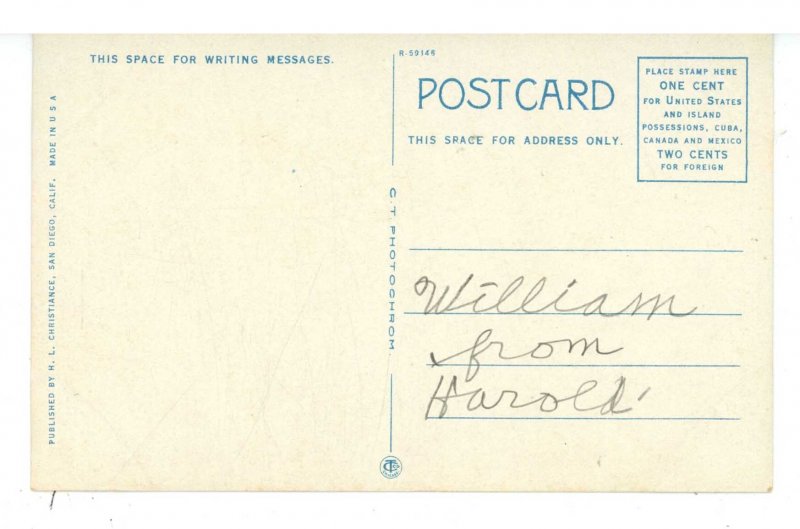 THIS SPACE FOR WRITING MESSAGES.
PUBLISHED BY H. L. CHRISTIANCE, SAN DIEGO, CALIF. MADE IN U S A
R-59146
POST CARD
THIS SPACE FOR ADDRESS ONLY.
PLACE STAMP HERE
ONE CENT
FOR UNITED STATES
AND ISLAND
POSSESSIONS, CUBA,
CANADA AND MEXICO
TWO CENTS
FOR FOREIGN
C. T. PHOTOCHROM
William
from
Harold